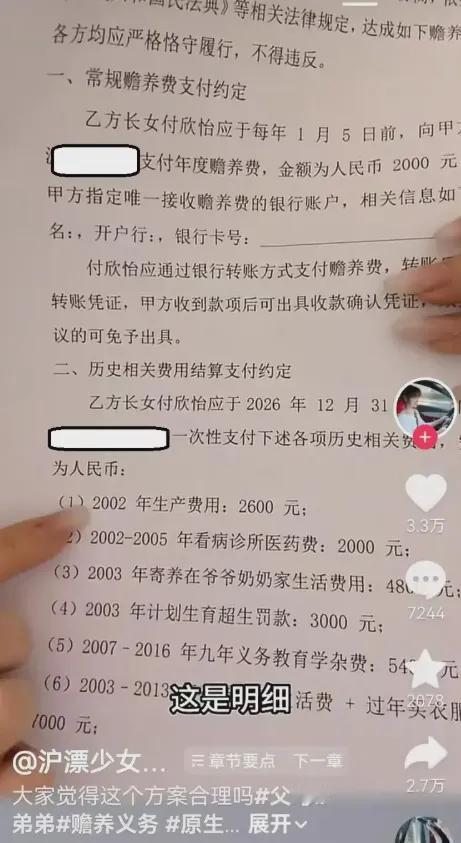 和国民法典》等相关法律规定，达成如下赡养
各方均应严格恪守履行，不得违反。
一、常规赡养费支付约定
乙方长女付欣怡应于每年 1 月 5 日前，向甲方
支付年度赡养费，金额为人民币 2000 元
甲方指定唯一接收赡养费的银行账户，相关信息如
名：，开户行：，银行卡号：
付欣怡应通过银行转账方式支付赡养费，转账
转账凭证，甲方收到款项后可出具收款确认凭证，
议的可免予出具。
二、历史相关费用结算支付约定
乙方长女付欣怡应于 2026 年 12 月 31
一次性支付下述各项历史相关费
为人民币：
（1）2002 年生产费用：2600 元；
2）2002-2005 年看病诊所医药费：2000 元；
（3）2003 年寄养在爷爷奶奶家生活费用：480 元；
（4）2003 年计划生育超生罚款：3000 元；
（5）2007－2016 年九年义务教育学杂费：54 元
（6）2003－2013 活费 + 过年买衣服
7000 元；
这是明细
3.3万
7244
2078
2.7万
@沪漂少女...
章节要点 下一章
大家觉得这个方案合理吗#父
弟弟#赡养义务 #原生... 展开